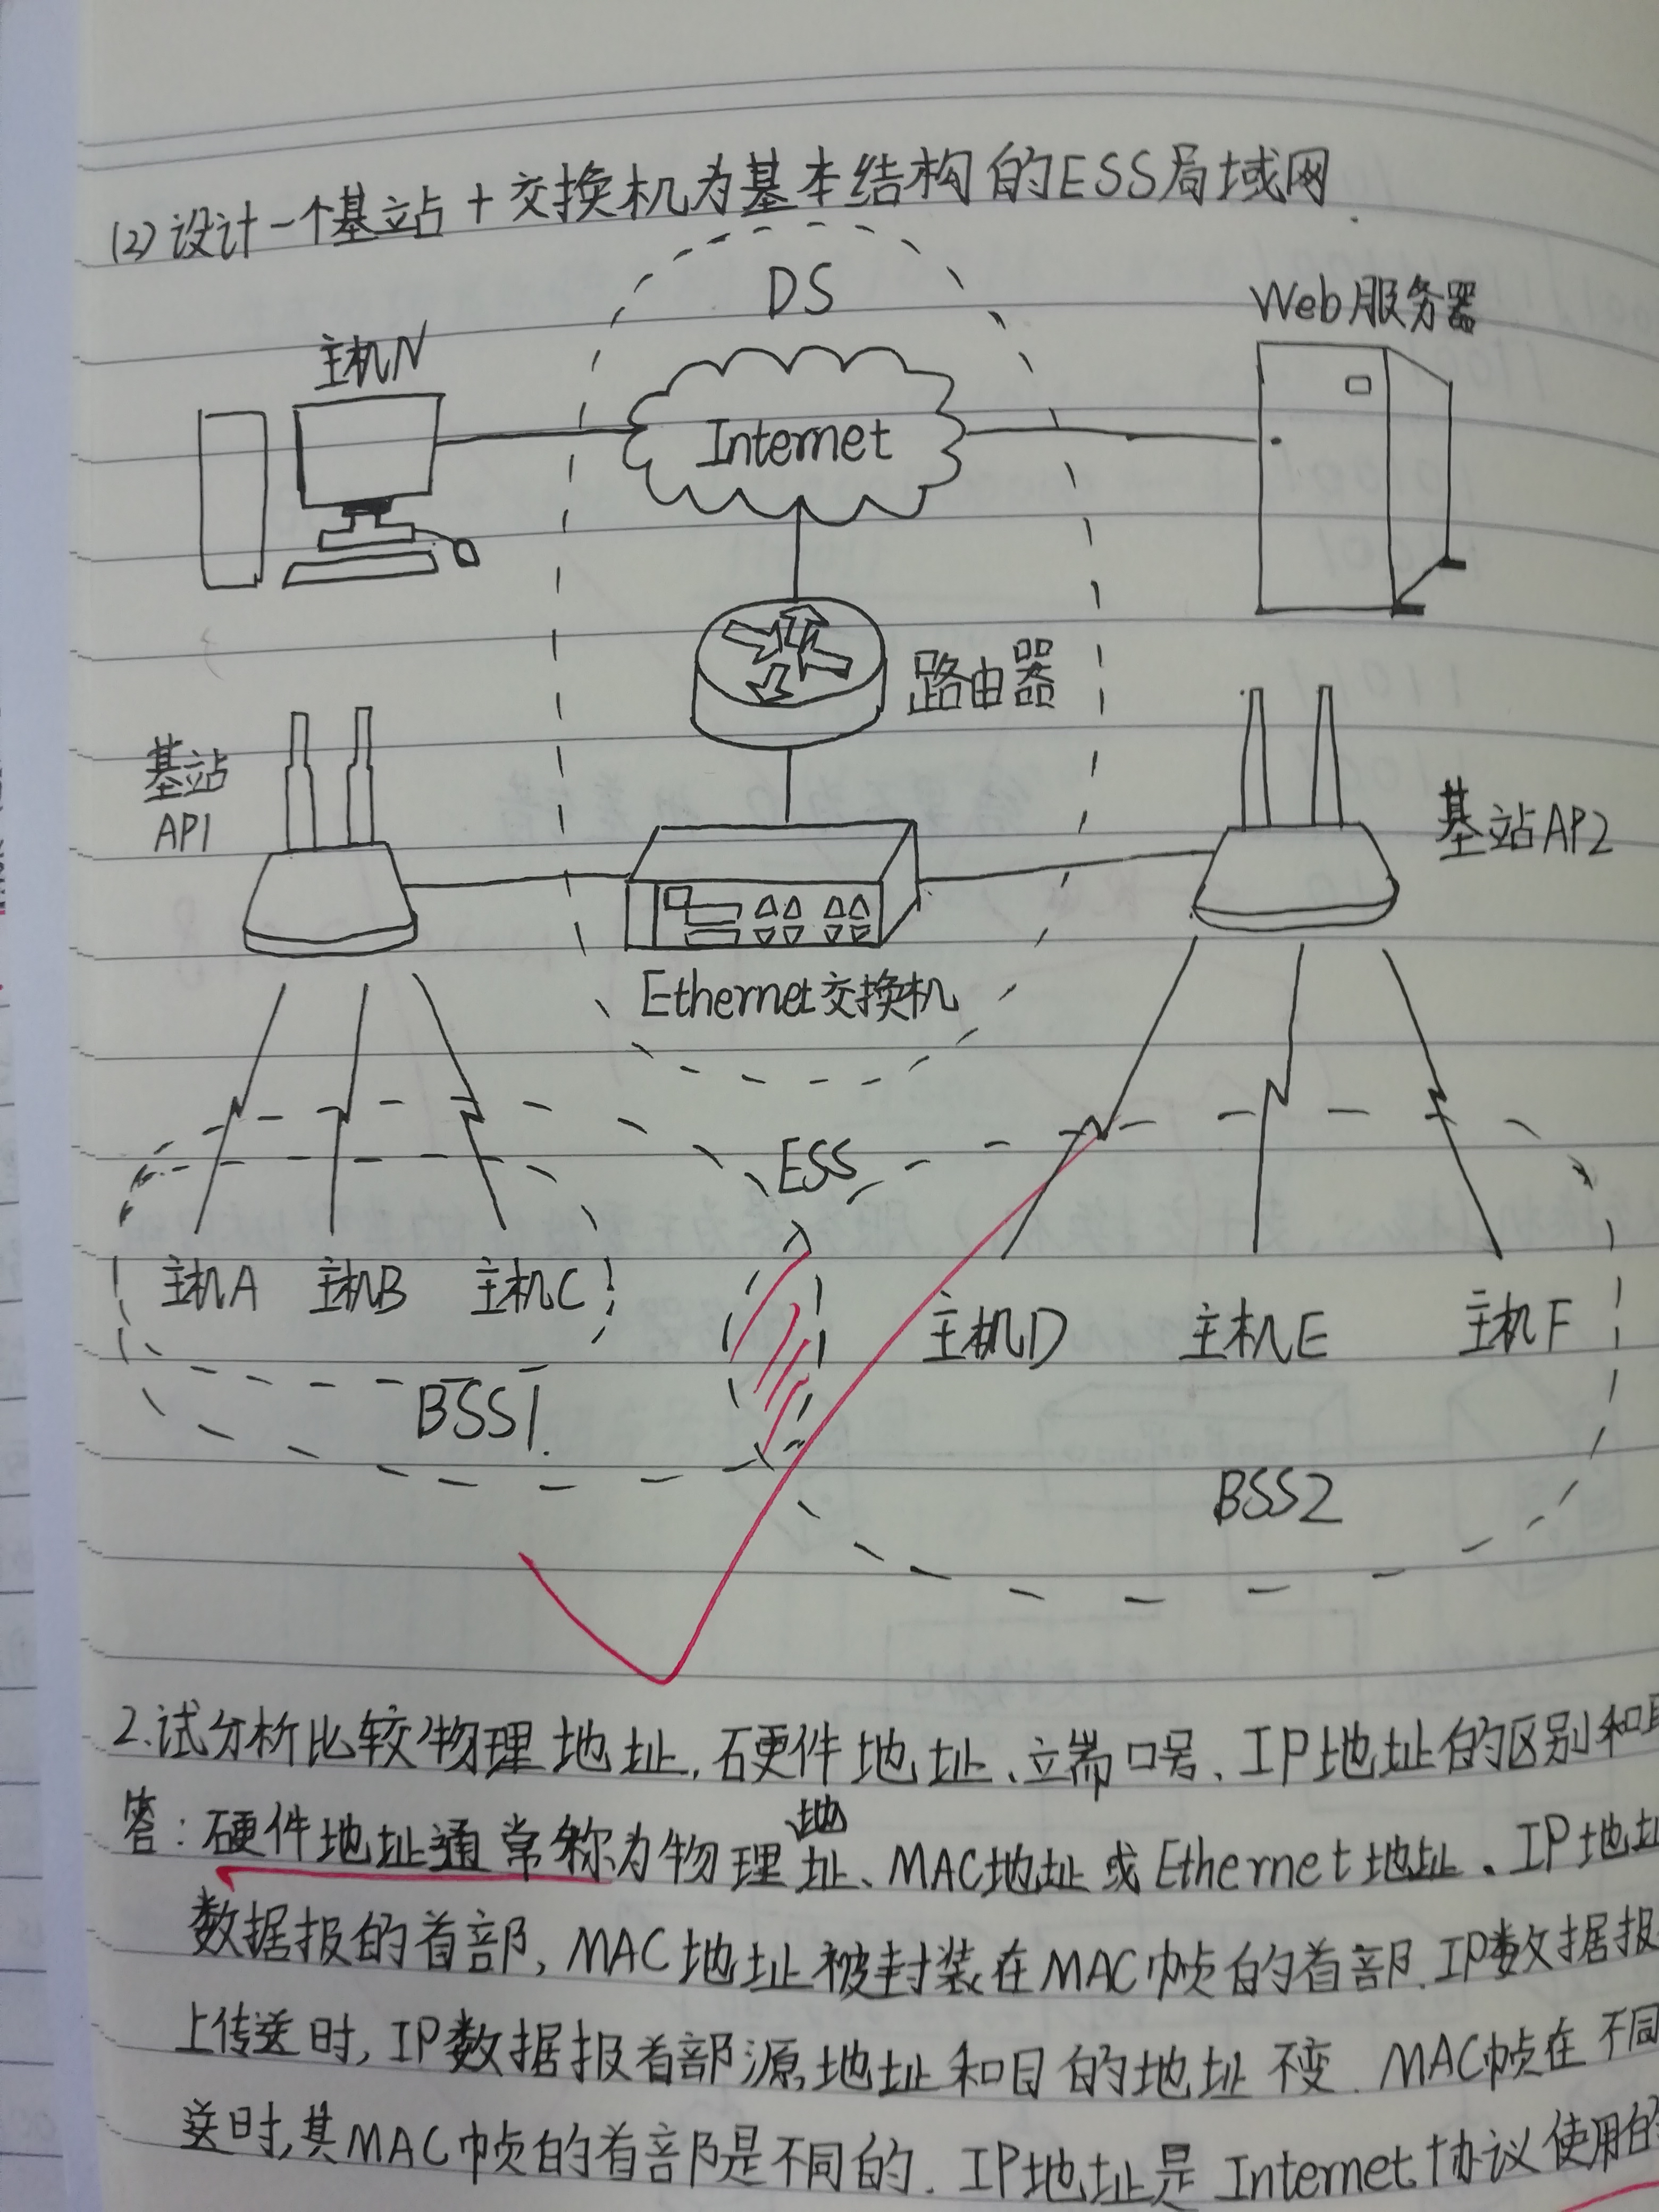 (2)设计一个基站+交换机为基本结构的ESS局域网.
DS
Web服务器
主机N
Internet
路由器
基站
AP1
基站AP2
Ethernet交换机
ESS
主机A 主机B 主机C
主机D 主机E 主机F
BSS1.
BSS2
2.试分析比较物理地址,硬件地址、端口号、IP地址的区别和
答:硬件地址通常称为物理地址、MAC地址或Ethernet地址.IP地址
数据报的首部,MAC地址被封装在MAC帧的首部.IP数据报
上传送时,IP数据报首部源地址和目的地址不变.MAC帧在不同
送时,其MAC帧的首部是不同的.IP地址是Internet协议使用的